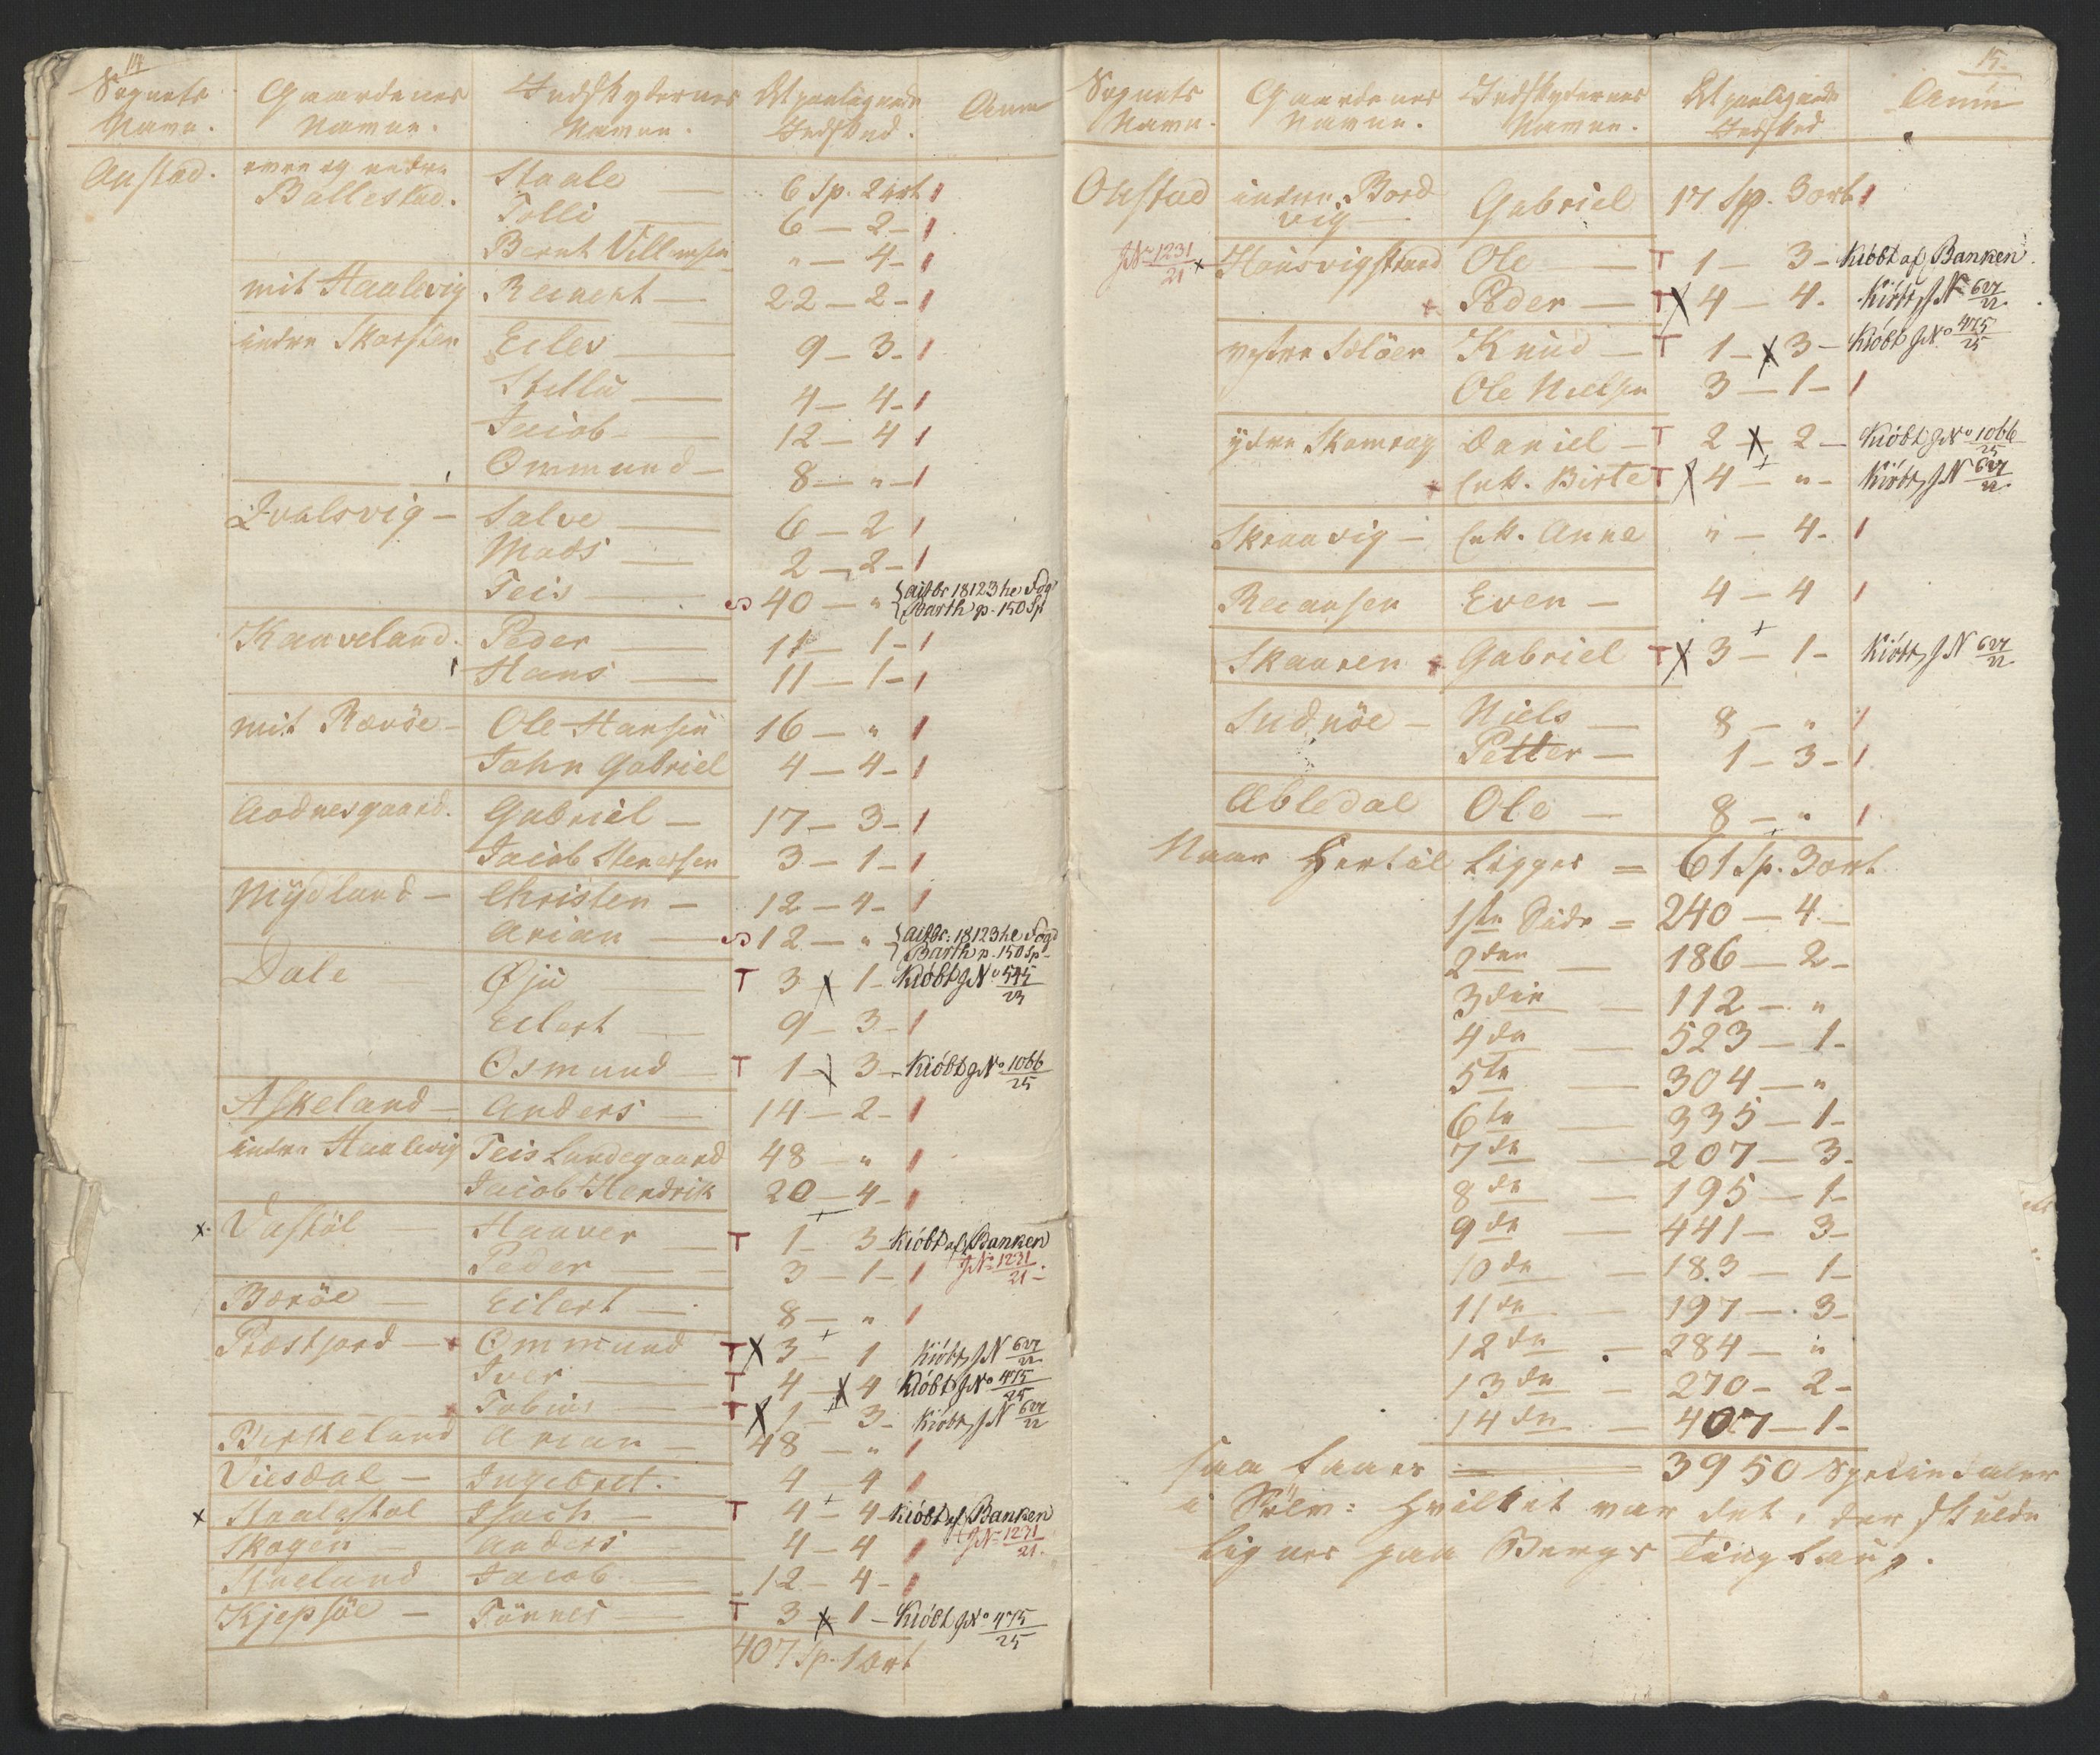 14
Sognets Navn. Gaardenes Navne. Indskydernes Navne. Udpaalignede Indskud. Anm
Austad. övre og nedre Ballestad. Staale — 6 Sp. 2 ort
Tolli — 6 — 2 —
Bernt Villumsen " — 4 —
mit Haalevig Reinert — 22 — 2 —
indre Skarsten Eilev — 9 — 3 —
Stellu — 4 — 4 —
Jacob — 12 — 4
Ommund — 8 — " —
Qvalsvig — Salve — 6 — 2
Mads — 2 — 2 —
Teis — 40 — "
Barth p. 150 Sp
Kaaveland. Peder — 11 — 1 —
Hans — 11 — 1 —
mit Rævöe — Ole Hansen 16 — "
John Gabriel 4 — 4 —
Aadnesgaard. Gabriel — 17 — 3 —
Jacob Stenersen 3 — 1 —
Mydland — Christen — 12 — 4 —
Arian — 12 — "
Barth p. 150 Sp
Dale — Öju — T 3 x 1 — Kiöbt J N° 545/23
Eilert — 9 — 3 —
Osmund — T 1 — 3 — Kiöbt J N° 1066/25
Askeland — Anders — 14 — 2 —
indre Haalevig Teis Lundegaard 48 — "
Jacob Hendrik 20 — 4 —
x Vastöl — Haaver — T 1 — 3 — Kiöbt af Banken
Peder — 3 — 1 — J N° 1231/21
Boröe — Eilert — 8 — "
Prestjord — Ommund T x 3 — 1 Kiöbt J N 627/22
Iver — T 4 — x 4 Kiöbt J N° 475/25
Tobias — T x 1 — 3 — Kiöbt J N 627/22
Birkeland Arian — 48 — "
Viesdal — Ingebret. 4 — 4
x Staalestöl Isach — T 4 — 4 — Kiöbt af Banken
Skogen — Anders — 4 — 4 J N° 1231/21.
Jacob — 12 — 4 —
Kjepsöe — Tönnes — T 3 x 1 — Kiöbt J N° 475/25
407 Sp. 1 ort
15.
Sognets Navn. Gaardenes Navne. Indskydernes Navne. Udpaalignede Indskud Anm
Oustad indre Bordvig — Gabriel 17 Sp. 3 ort
J N° 1231/21 x Hausvigstrand Ole — T 1 — 3 — Kiöbt af Banken.
Peder — T x 4 — 4. Kiöbt J N 627/22
vestre Selöer Knud — T 1 — x 3 — Kiöbt J N° 475/25
Ole Nielsen 3 — 1 —
ydre Skamrag Daniel — T 2 x 2 — Kiöbt J N° 1066/25
Enk. Birte T x 4 — " — Kiöbt J N 627/22
Skraavig — Enk. Anne " — 4 —
Even — 4 — 4
Skaaren Gabriel T x 3 — 1 — Kiöbt J N 627/22
Sudnöe — Niels — 8 — "
Petter — 1 — 3 —
Abledal Ole — 8 — "
Naar Hertil Ligges = 61 Sp. 3 ort
1ste Side = 240 — 4 —
2den — 186 — 2 —
3die — 112 — "
4de — 523 — 1 —
5te — 304 — "
6te — 335 — 1 —
7de — 207 — 3 —
8de — 195 — 1 —
9de — 441 — 3 —
10de — 183 — 1 —
11de — 197 — 3 —
12de — 284 — "
13de — 270 — 2 —
14de — 407 — 1 —
saa faaes = 3950 Speciedaler
i Sölv: hvilket var det, der skulde
lignes paa Bergs Tinglaug.